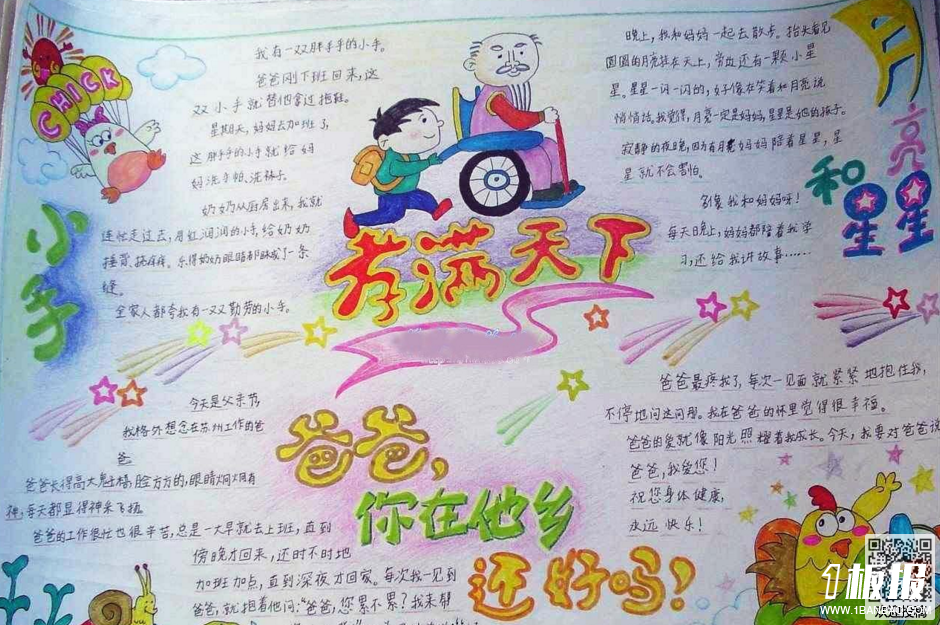 CHICK
小手
我有一双胖乎乎的小手。
爸爸刚下班回来,这
双小手就替他拿过拖鞋。
星期天,妈妈去加班了,
这胖乎乎的小手就给妈
妈洗手帕、洗袜子。
奶奶从厨房出来,我就
连忙走过去,用红润润的小手给奶奶
捶背、挠痒痒。乐得奶奶眼睛都眯成了一条
缝。
全家人都夸我有一双勤劳的小手。
孝满天下
月亮和星星
晚上,我和妈妈一起去散步。抬头看见
圆圆的月亮挂在天上,旁边还有一颗小星
星。星星一闪一闪的,好像在笑着和月亮说
悄悄话。我觉得,月亮一定是妈妈,星星是他的孩子。
寂静的夜晚,因为有月亮妈妈陪着星星,星
星就不会害怕。
多像我和妈妈呀!
每天晚上,妈妈都陪着我学
习,还给我讲故事……
爸爸,
你在他乡
还好吗?
今天是父亲节,
我格外想念在苏州工作的爸
爸。
爸爸长得高大魁梧,脸方方的,眼睛炯炯有
神,每天都显得神采飞扬。
爸爸的工作很忙也很辛苦,总是一大早就去上班,直到
傍晚才回来,还时不时地
加班加点,直到深夜才回家。每次我一见到
爸爸,就抱着他问:“爸爸,您累不累?我来帮
爸爸最疼我了,每次一见面就紧紧地抱住我,
不停地问这问那。我在爸爸的怀里觉得很幸福。
爸爸的爱就像阳光照耀着我成长。今天,我要对爸爸说
爸爸,我爱您!
祝您身体健康,
永远快乐!
1板报
WWW.1BANBAO.COM
欢迎投稿